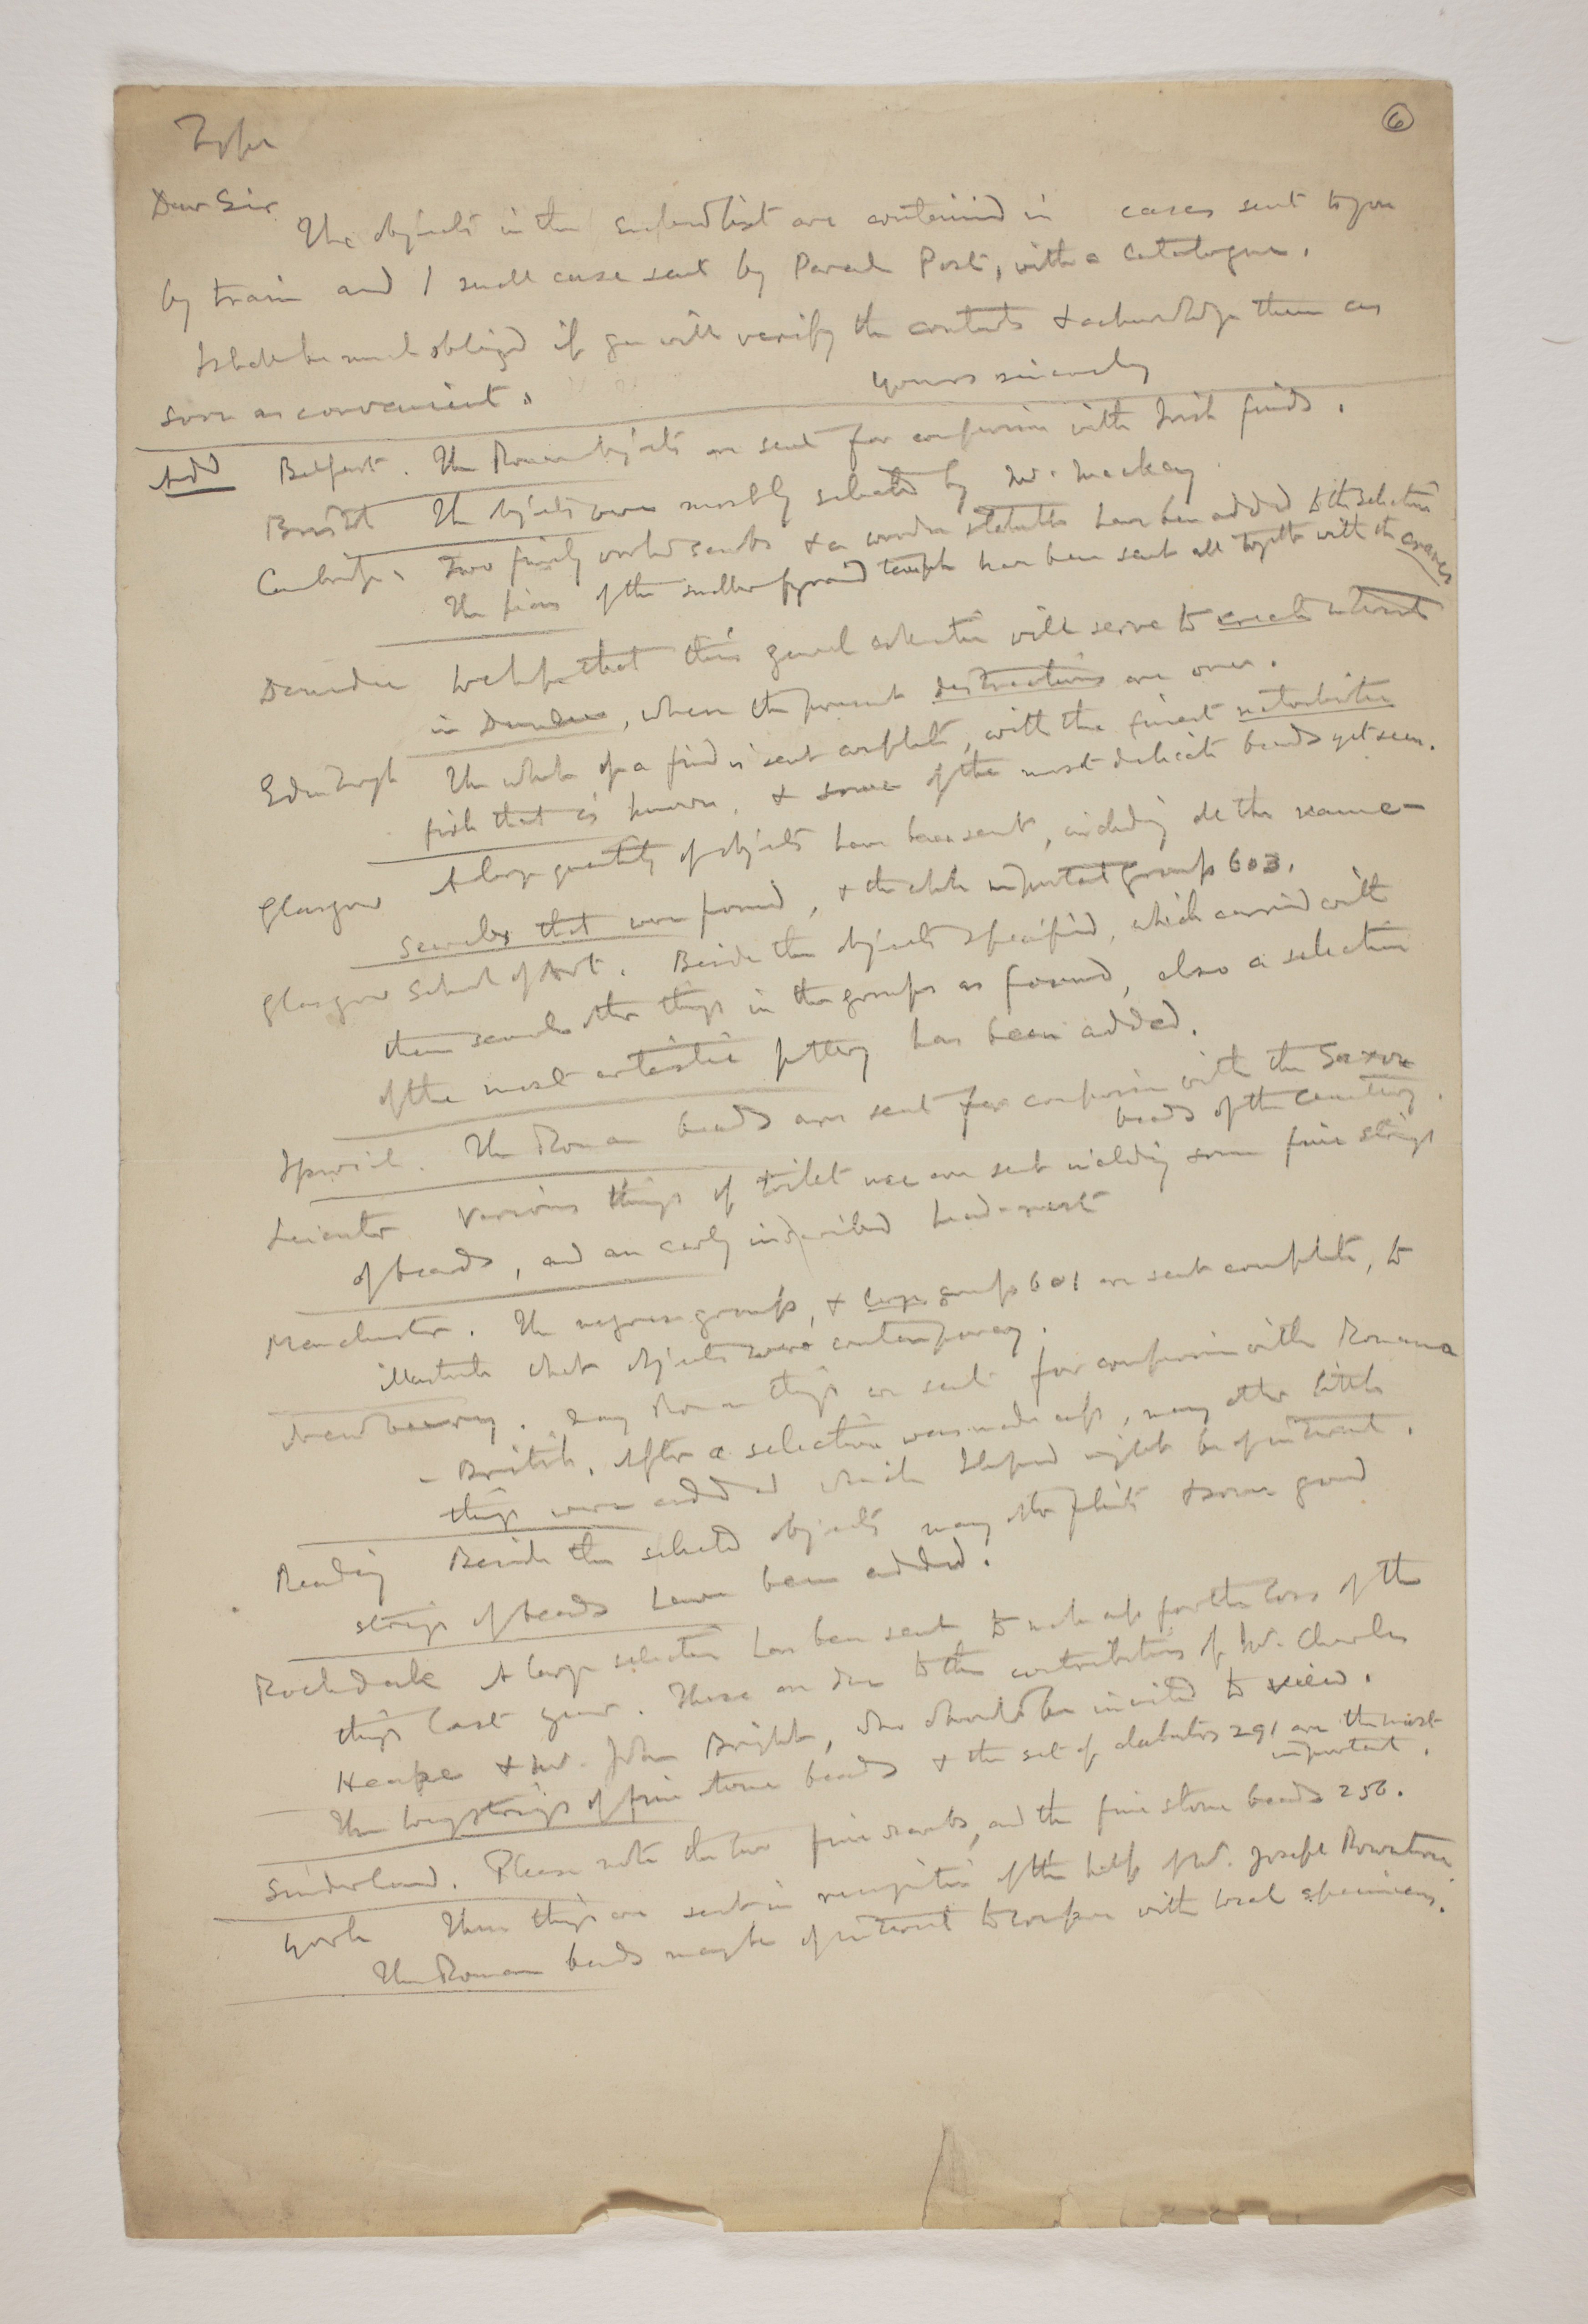 6
Type
Dear Sir
The objects in the enclosed list are contained in cases sent to you
by train and 1 small case sent by Parcels Post, with a Catalogue.
I shall be much obliged if you will verify the contents & acknowledge them as
soon as convenient. Yours sincerely
Add Belfast. The Roman objects are sent for comparison with Irish finds.
Bristol The objects were mostly selected by Mr. Mackay
Cambridge. Two finely worked scarabs & a wooden statuette have been added to the selection
The pieces of the smaller pyramid temple have been sent all together with the
Dundee We hope that this general selection will serve to create interest
in Dundee, when the present destructions are over.
Edinburgh The whole of a find is sent complete, with the finest
fish that is known, & some of the most delicate beads yet seen.
Glasgow A large quantity of objects have been sent, including all the name-
scarabs that were found, & the whole important group 603.
Glasgow School of Art. Beside the objects specified, which carried with
them several other things in the groups as found, also a selection
of the most artistic pottery has been added.
Ipswich. The Roman beads are sent for comparison with the Saxon
beads of the Cemetery.
Leicester Various things of toilet use are sent including some fine strings
of beads, and an early inscribed head-rest
Manchester. The group, & large group 601 are sent complete, to
illustrate what objects were contemporary.
Newbury. Many Roman things are sent for comparison with Romano
- British. After a selection was made up, many other little
things were added which I hoped might be of interest.
Reading Beside the selected objects many other flints & some good
strings of beads have been added.
Rochdale A large selection has been sent to make up for the loss of the
things last year. These are due to the contributions of Mr. Charles
Heape & Mr. John Bright, who should be invited to view.
The long strings of fine stone beads & the set of alabasters 291 are the most
important.
Sunderland. Please note the two fine scarabs, and the fine stone beads 256.
York These things are sent in recognition of the help of Mr. Joseph Rowntree
The Roman beads may be of interest to compare with local specimens.